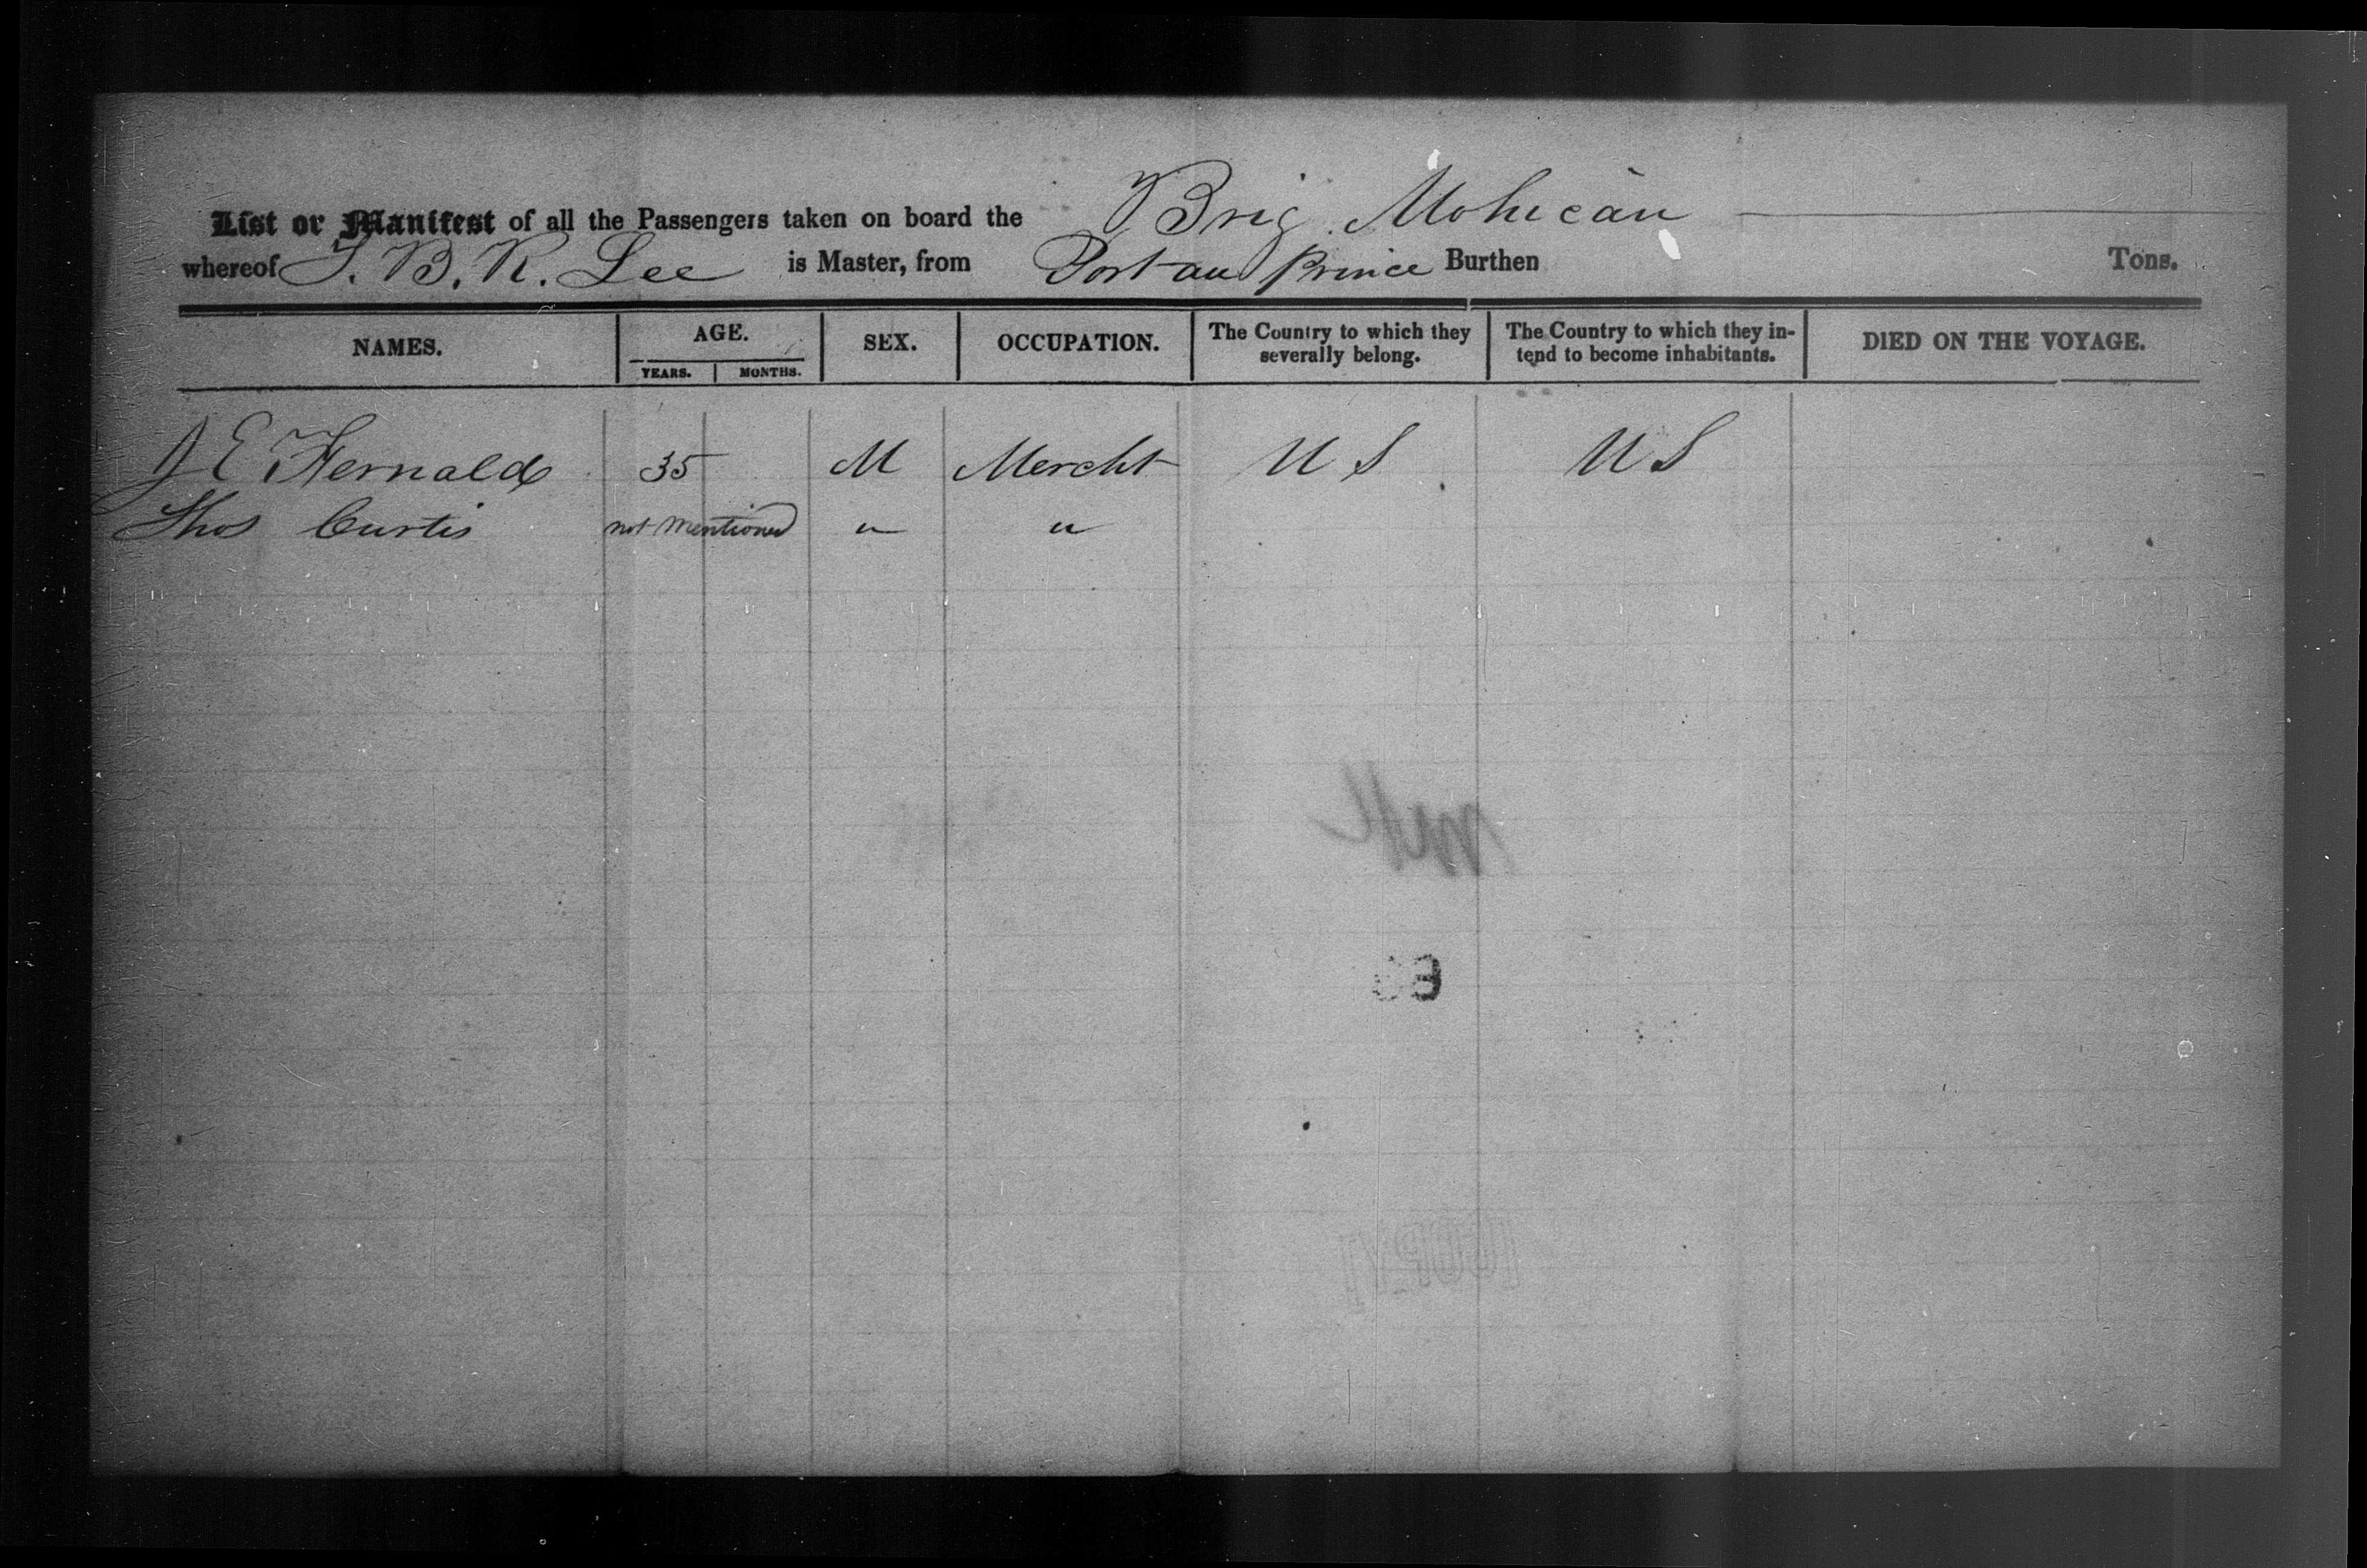 List or Manifest of all the Passengers taken on board the Brig Mohican
whereof T. B. R. Lee is Master, from Port au Prince Burthen Tons.
NAMES. AGE. SEX. OCCUPATION. The Country to which they severally belong. The Country to which they intend to become inhabitants. DIED ON THE VOYAGE.
YEARS. MONTHS.
J E Fernald 35 M Mercht U S U S
Thos Curtis not Mentioned " "